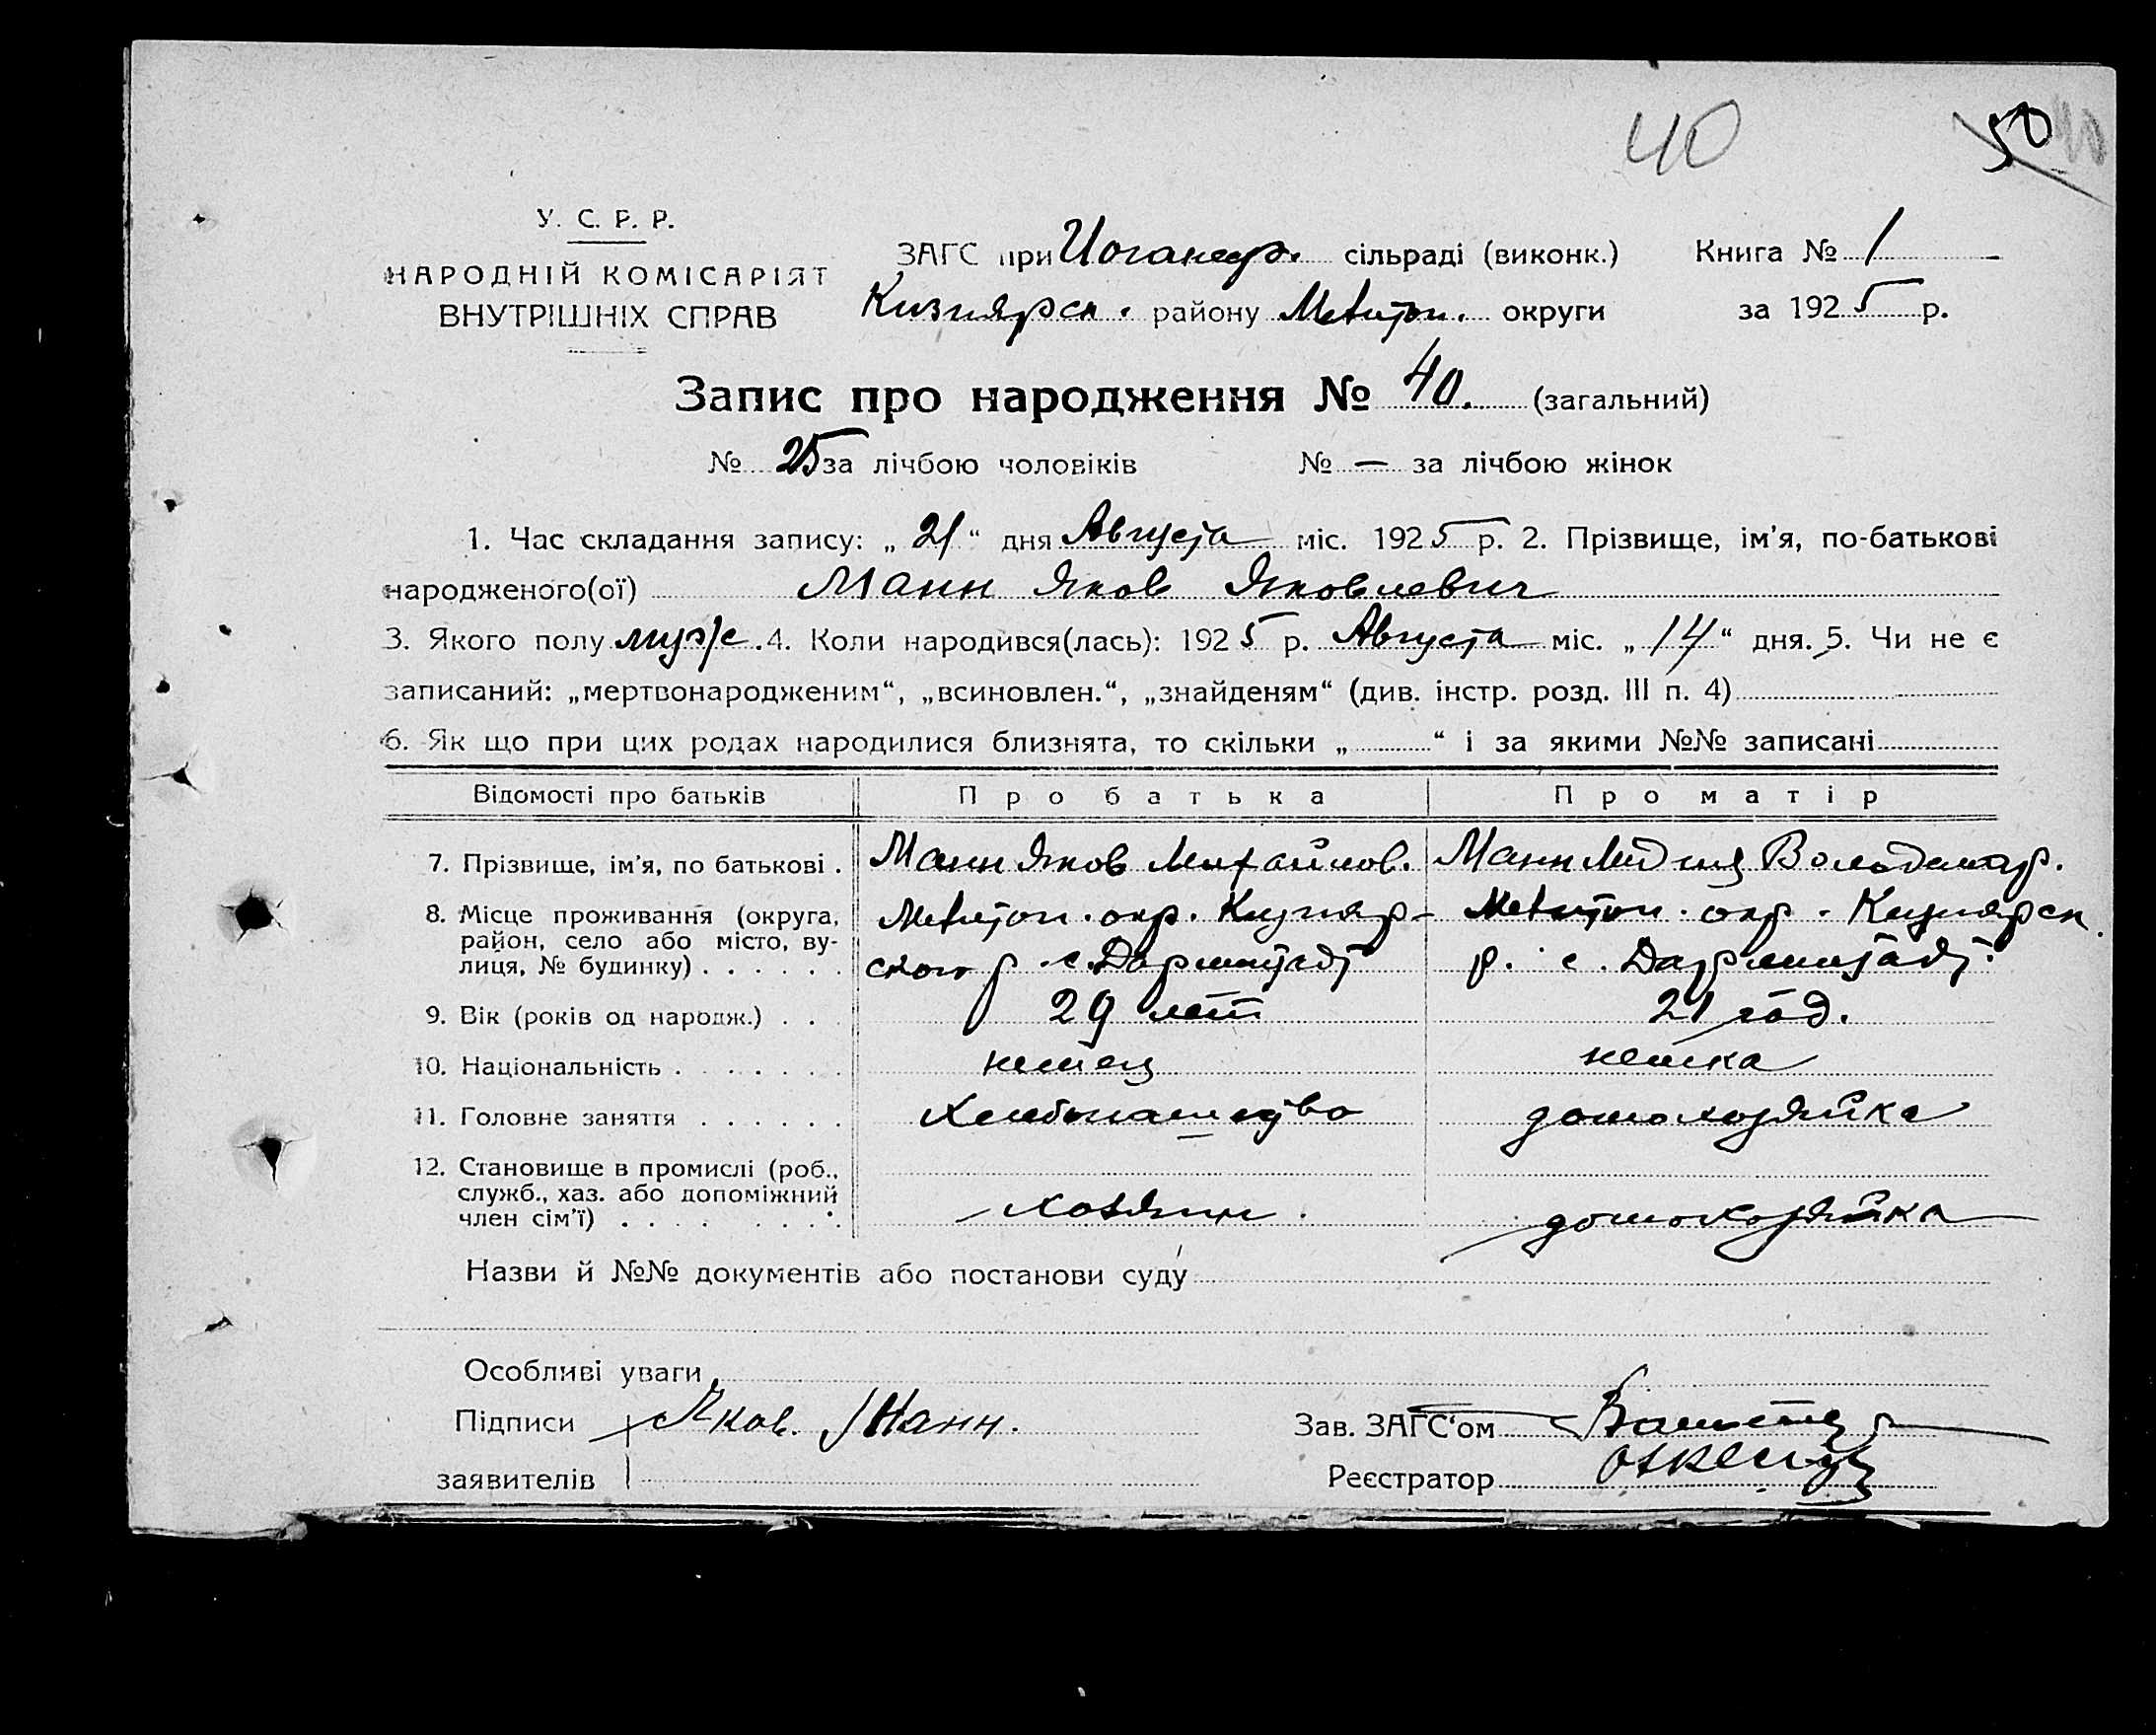 40 50 40
У. С. Р. Р.
НАРОДНІЙ КОМІСАРІЯТ
ВНУТРІШНІХ СПРАВ
ЗАГС при сільраді (виконк.) Книга № 1
Кизиярск. району Мелитоп. округи за 1925 р.
Запис про народження № 40. (загальний)
№ 25 за лічбою чоловіків № — за лічбою жінок
1. Час складання запису: „ 21 “ дня Августа міс. 1925 р. 2. Прізвище, ім’я, по-батькові
народженого(ої) Манн Яков Яковлевич
3. Якого полу муж. 4. Коли народився(лась): 1925 р. Августа міс. „ 14 “ дня. 5. Чи не є
записаний: „мертвонародженим“, „всиновлен.“, „знайденям“ (див. інстр. розд. III п. 4)
6. Як що при цих родах народилися близнята, то скільки „ “ і за якими №№ записані
Відомості про батьків Про батька Про матір
7. Прізвище, ім’я, по батькові . Манн Яков Михайлов. Манн Лидия Володимир.
8. Місце проживання (округа, Мелитоп. окр. Кизияр- Мелитоп. окр. Кизиярск
район, село або місто, ву-
лиця, № будинку) . . . . . . ского р. с. Дармштадт р. с. Дармштадт.
9. Вік (років од народж.) . . . 29 лет 21 год.
10. Національність . . . . . . . немец немка
11. Головне заняття . . . . . . Хлебопашество домохозяйка
12. Становище в промислі (роб.,
служб., хаз. або допоміжний
член сім’ї) . . . . . . . . . хозяин. домохозяйка
Назви й №№ документів або постанови суду
Особливі уваги
Підписи Яков. Манн. Зав. ЗАГС‘ом
заявителів Реєстратор